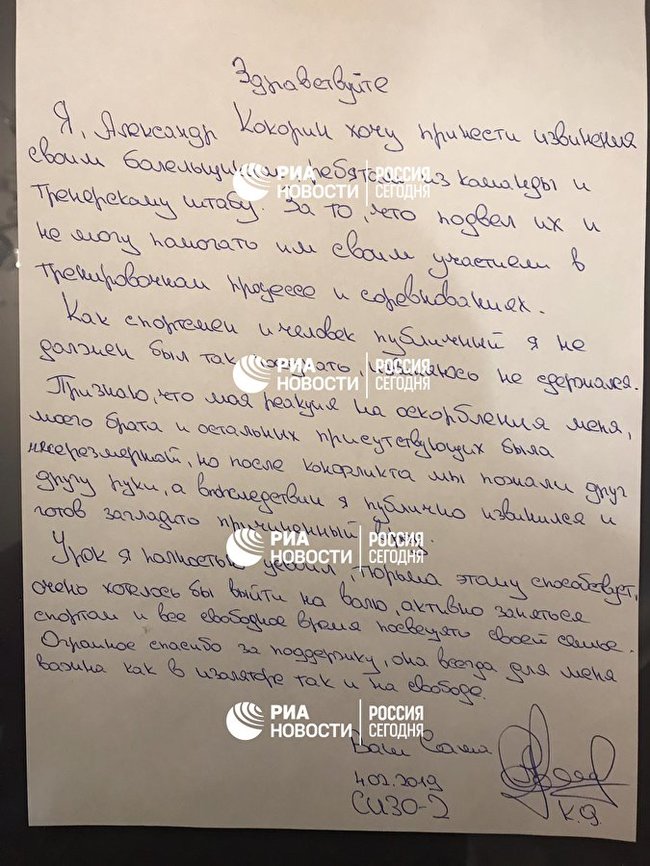 Здравствуйте
Я, Александр Кокорин хочу принести извинения
своим болельщикам ребятам из команды и
тренерскому штабу. За то, что подвел их и
не могу помогать им своим участием в
тренировочном процессе и соревнованиях.
Как спортсмен и человек публичный я не
должен был так , не сдержался.
Признаю, что моя реакция на оскорбления меня,
моего брата и остальних присутствующих была
чрезмерной, но после конфликта мы пожали друг
другу руки, а впоследствии я публично извинился и
готов загладить причиненный
Урок я полностью усвоил, тюрьма этому способствует,
очень хотелось бы выйти на волю, активно заняться
спортом и все свободное время посвещять своей семье.
Огромное спасибо за поддержку, она всегда для меня
важна как в изоляторе так и на свободе.
Ваш Саша
4.02.2019
СИЗО-2
РИА НОВОСТИ РОССИЯ СЕГОДНЯ
РИА НОВОСТИ РОССИЯ СЕГОДНЯ
РИА НОВОСТИ РОССИЯ СЕГОДНЯ
РИА НОВОСТИ РОССИЯ СЕГОДНЯ